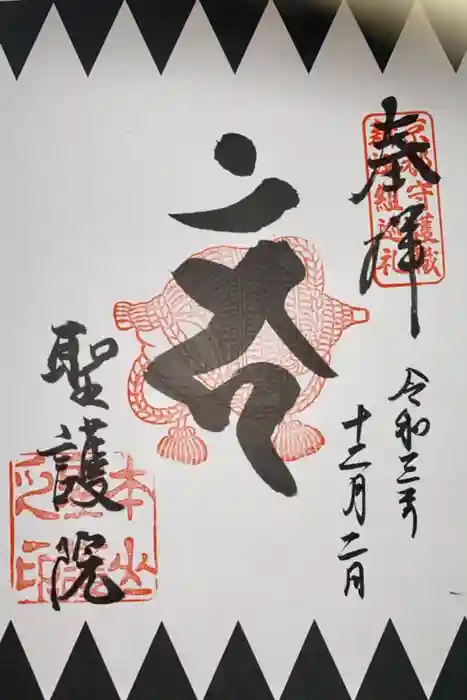 奉拝
京都守護職
新選組巡礼
令和三年
十二月二日
聖護院
本山
之印